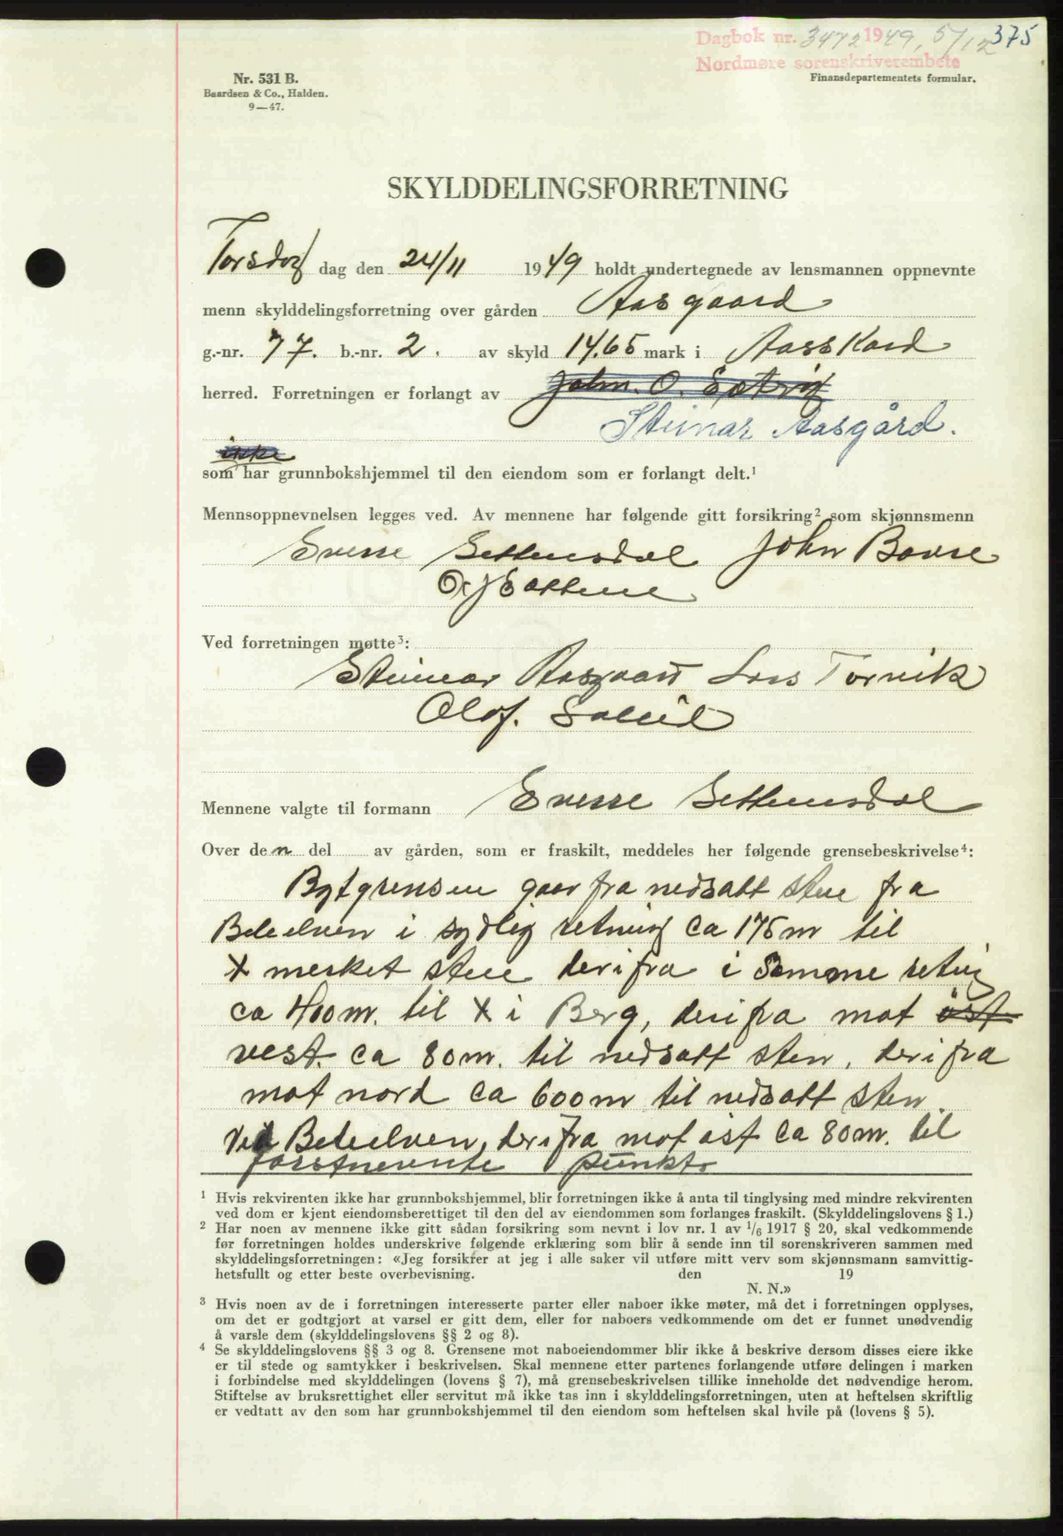 Dagbok nr. 3472 1949, 5/12 375
Nordmøre sorenskriverembete
Nr. 531 B.
Baardsen & Co., Halden.
9—47.
Finansdepartementets formular.
SKYLDDELINGSFORRETNING
Torsdag dag den 24/11 1949 holdt undertegnede av lensmannen oppnevnte
menn skylddelingsforretning over gården Aasgaard
g.-nr. 77. b.-nr. 2. av skyld 14.65 mark i Aasskard
herred. Forretningen er forlangt av John. O.
Steinar Aasgård.
ikke
som har grunnbokshjemmel til den eiendom som er forlangt delt.¹
Mennsoppnevnelsen legges ved. Av mennene har følgende gitt forsikring² som skjønnsmenn
Sverre Settemsdal John Bævre
Ved forretningen møtte³:
Steinar Aasgaard Lars Torvik
Olaf. Solli
Mennene valgte til formann Sverre Settemsdal
Over den del av gården, som er fraskilt, meddeles her følgende grensebeskrivelse⁴:
Bytgrensen gaar fra nedsatt sten fra
Beleelven i sydlig retning ca 175 m til
X merket sten derifra i samme retnig
ca 400 m. til X i Berg, derifra mot øst
vest. ca 80 m. til nedsatt sten, derifra
mot nord ca 600 m til nedsatt sten
ved Beleelven, derifra mot øst ca 80 m. til
førstnevnte punkt
¹ Hvis rekvirenten ikke har grunnbokshjemmel, blir forretningen ikke å anta til tinglysing med mindre rekvirenten
ved dom er kjent eiendomsberettiget til den del av eiendommen som forlanges fraskilt. (Skylddelingslovens § 1.)
² Har noen av mennene ikke gitt sådan forsikring som nevnt i lov nr. 1 av 1/6 1917 § 20, skal vedkommende
før forretningen holdes underskrive følgende erklæring som blir å sende inn til sorenskriveren sammen med
skylddelingsforretningen: «Jeg forsikrer at jeg i alle saker vil utføre mitt verv som skjønnsmann samvittig-
hetsfullt og etter beste overbevisning. den 19
N. N.»
³ Hvis noen av de i forretningen interesserte parter eller naboer ikke møter, må det i forretningen opplyses,
om det er godtgjort at varsel er gitt dem, eller for naboers vedkommende om det er funnet unødvendig
å varsle dem (skylddelingslovens §§ 2 og 8).
⁴ Se skylddelingslovens §§ 3 og 8. Grensene mot naboeiendommer blir ikke å beskrive dersom disses eiere ikke
er til stede og samtykker i beskrivelsen. Skal mennene etter partenes forlangende utføre delingen i marken
i forbindelse med skylddelingen (lovens § 7), må grensebeskrivelsen tillike inneholde det nødvendige herom.
Stiftelse av bruksrettighet eller servitut må ikke tas inn i skylddelingsforretningen, uten at heftelsen skriftlig
er vedtatt av den som har grunnbokshjemmel til den eiendom som heftelsen skal hvile på (lovens § 5).